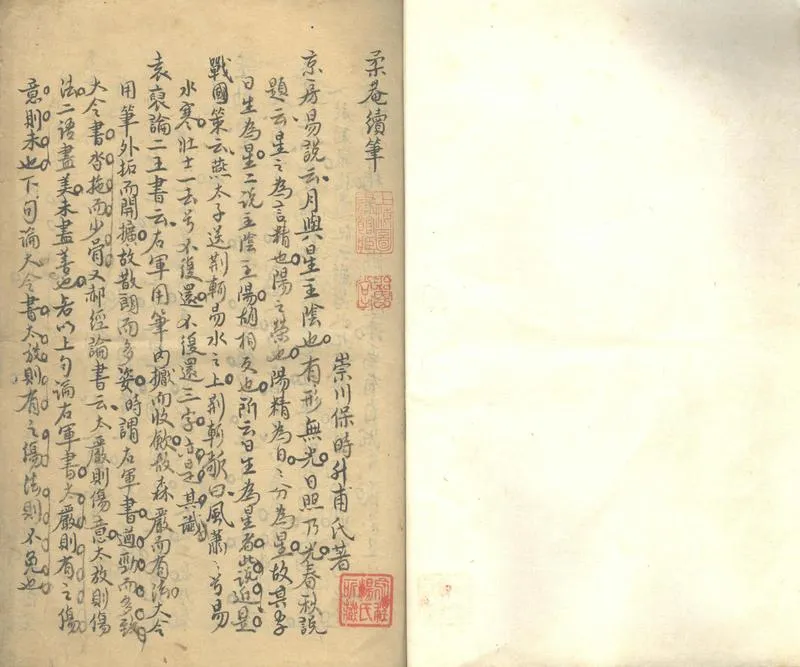 柔菴續筆
崇川保時升甫氏著
京房易說云月與星至陰也有形無光日照乃光春秋說
題云星之為言精也陽之榮也陽精為日日分為星故其字
日生為星二說主陰主陽胡相反也所云日生為星者此說近是
戰國策云燕太子送荆軻易水之上荆軻歌曰風蕭蕭兮易
水寒壯士一去兮不復還不復還三字亦是其讖
袁裒論二王書云右軍用筆內擫而收斂故森嚴而有法大令
用筆外拓而開擴故散朗而多姿時謂右軍書遒勁而多
大令書沓拖而少骨又郝經論書云太嚴則傷意太放則傷
法二語盡美未盡善也若以上句論右軍書太嚴則有之傷
意則未也下句論大令書太放則有之傷法則不免也